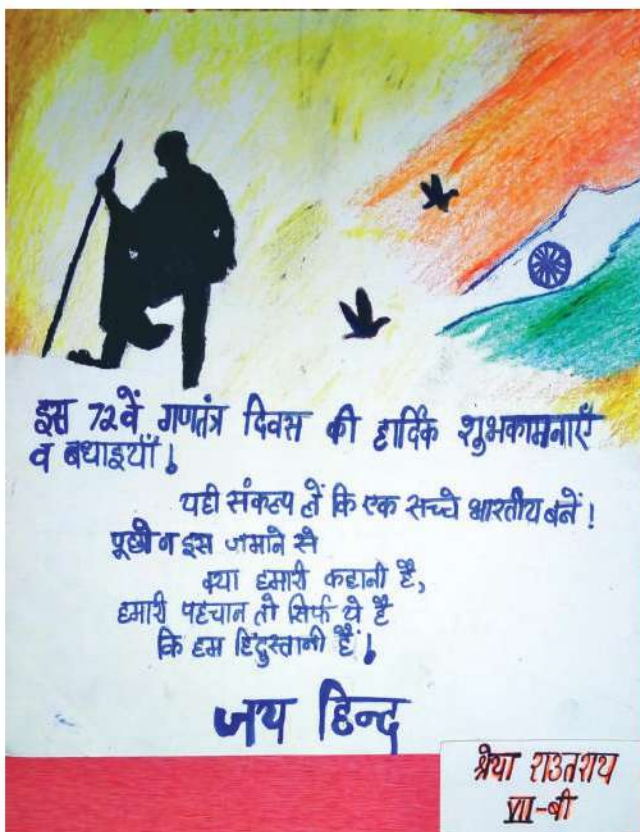 इस 72वें गणतंत्र दिवस की हार्दिक शुभकामनाएँ
व बधाइयाँ!
यही संकल्प लें कि एक सच्चे भारतीय बनें!
पूछो न इस जमाने से
क्या हमारी कहानी है,
हमारी पहचान तो सिर्फ ये है
कि हम हिंदुस्तानी हैं!
जय हिन्द
श्रेया राउतराय
VII-बी